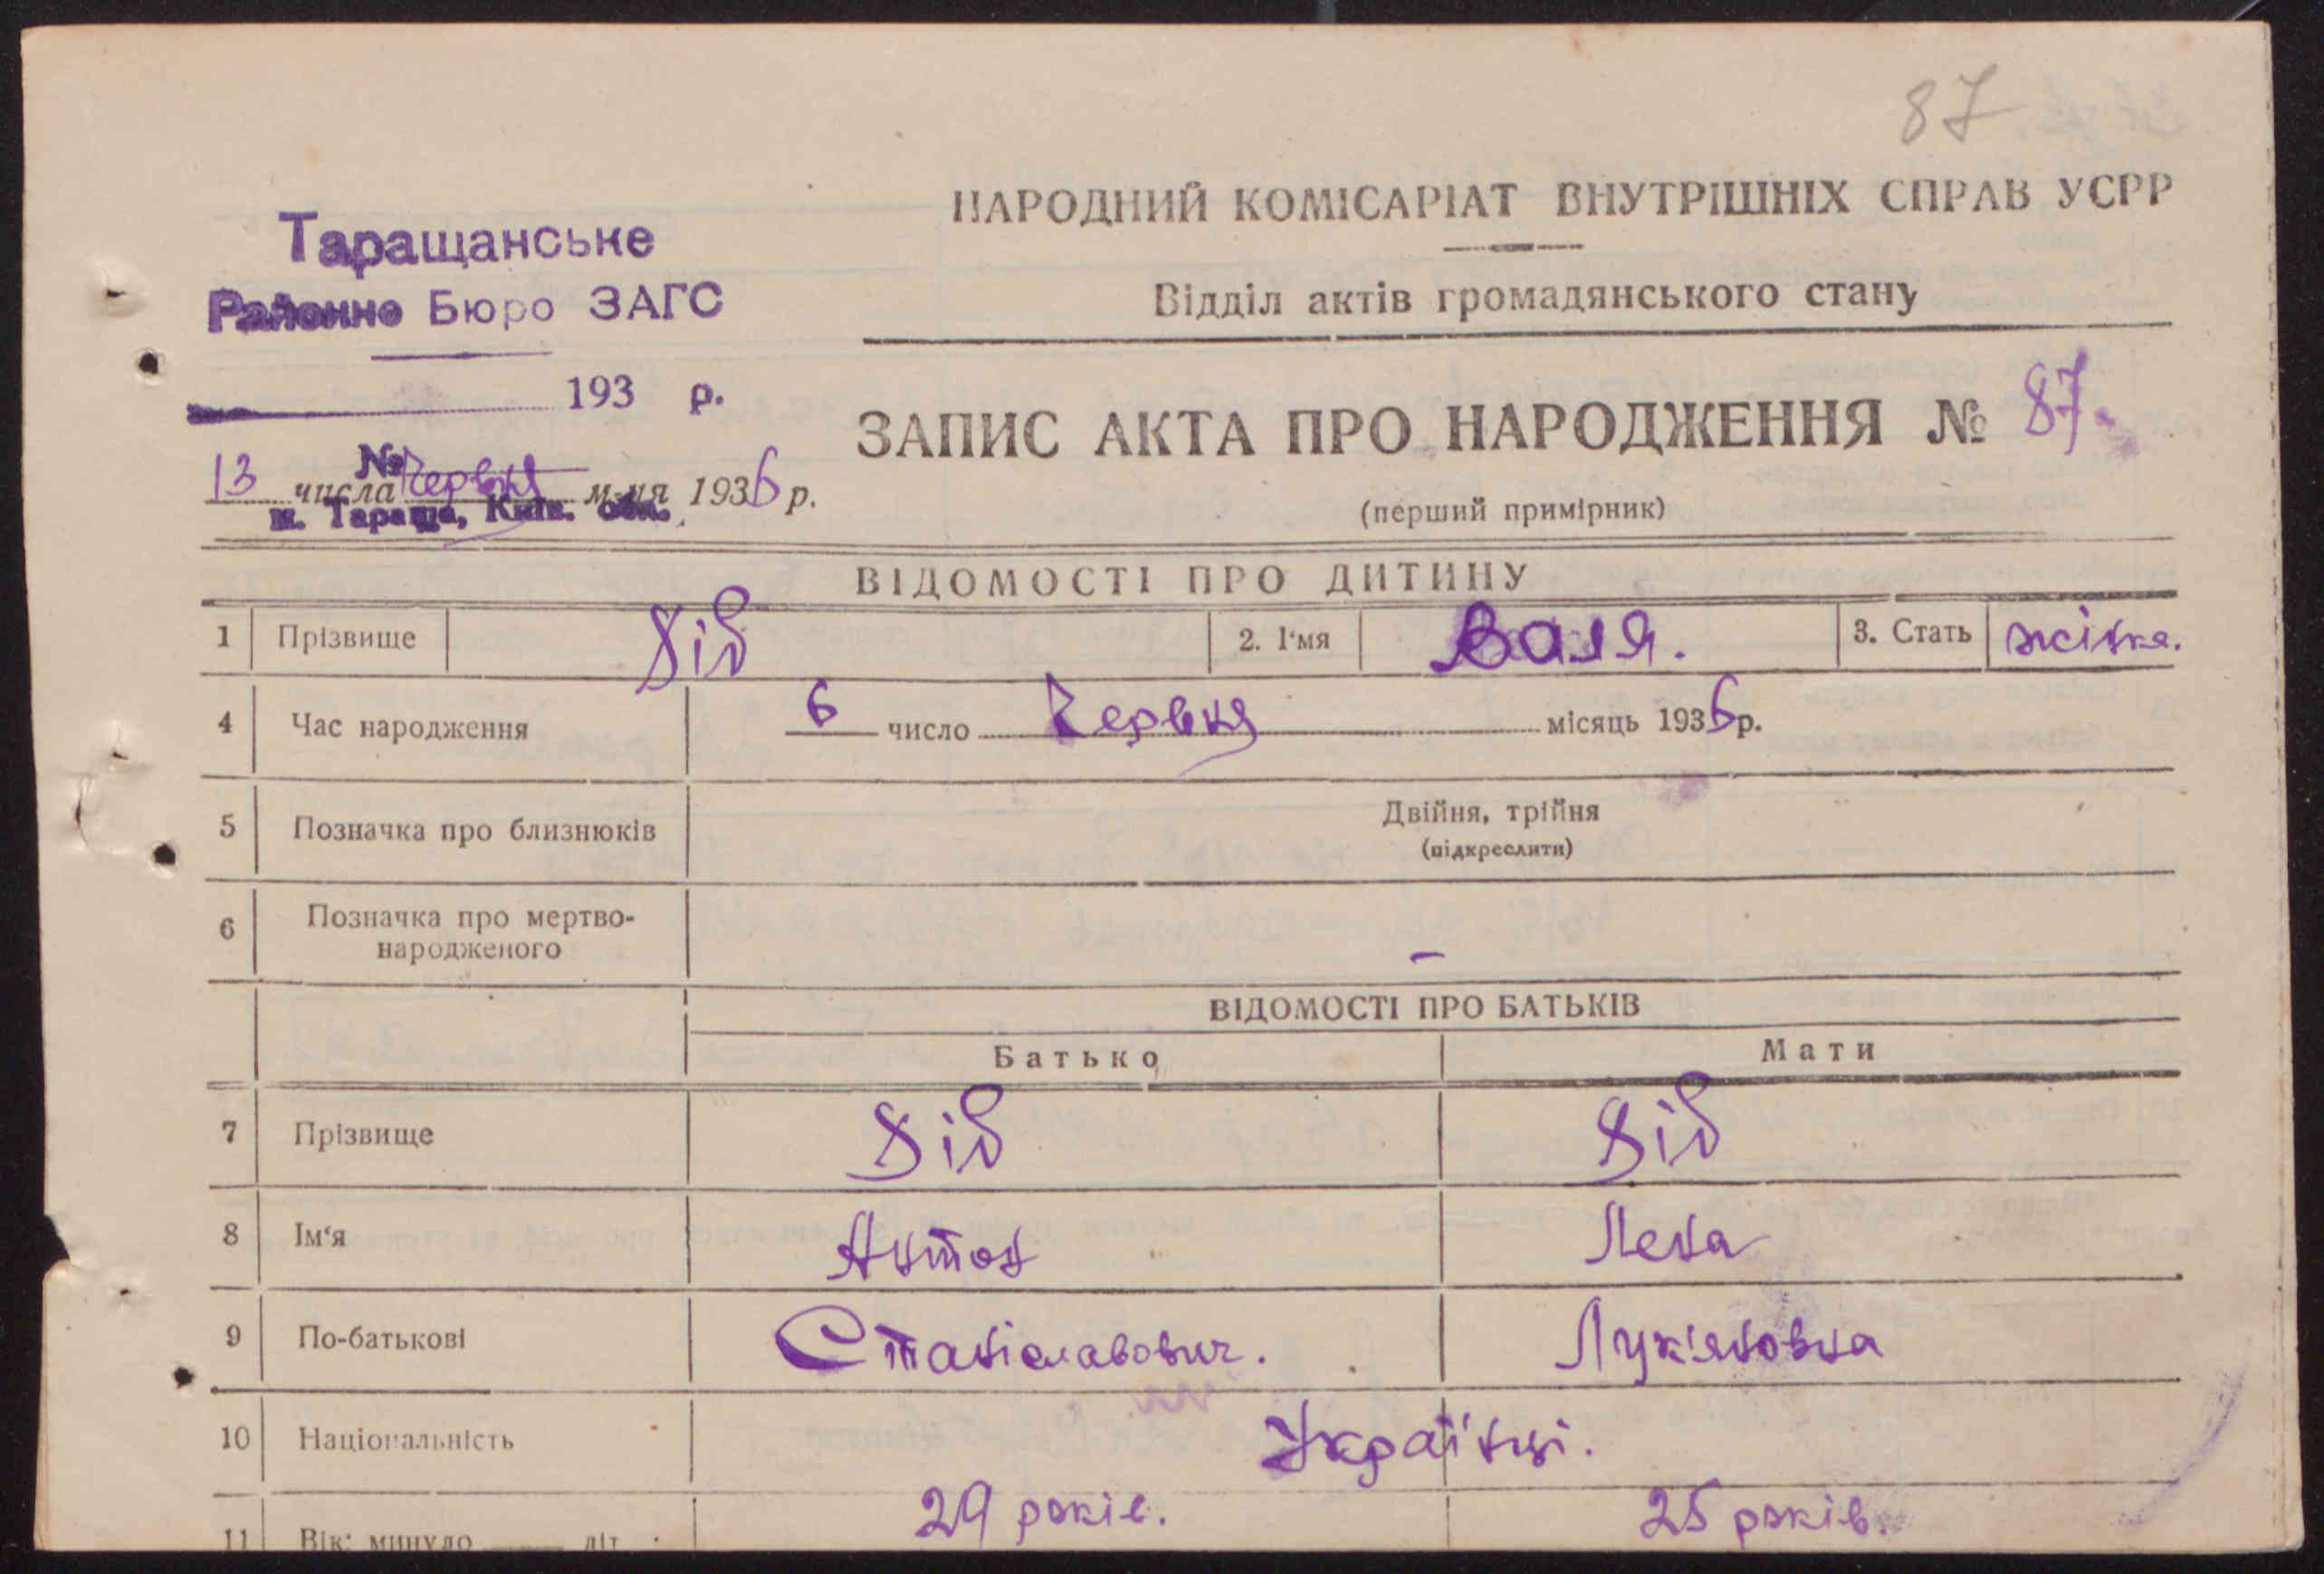 87.
Таращанське
Районне Бюро ЗАГС
193 р.
№
13 числа червня м-ця 1936 р.
м. Тараща, Київ. обл.
НАРОДНИЙ КОМІСАРІАТ ВНУТРІШНІХ СПРАВ УСРР
Відділ актів громадянського стану
ЗАПИС АКТА ПРО НАРОДЖЕННЯ № 87.
(перший примірник)
ВІДОМОСТІ ПРО ДИТИНУ
1 Прізвище Дід 2. І'мя Валя. 3. Стать жінка.
4 Час народження 6 число Червня місяць 1936 р.
5 Позначка про близнюків Двійня, трійня
(підкреслити)
6 Позначка про мертво-
народженого –
ВІДОМОСТІ ПРО БАТЬКІВ
Батько Мати
7 Прізвище Дід Дід
8 Ім'я Антон Лена
9 По-батькові Станіславович. Лук'яновна
10 Національність Українці.
11 Вік: минуло літ 29 років. 25 років.